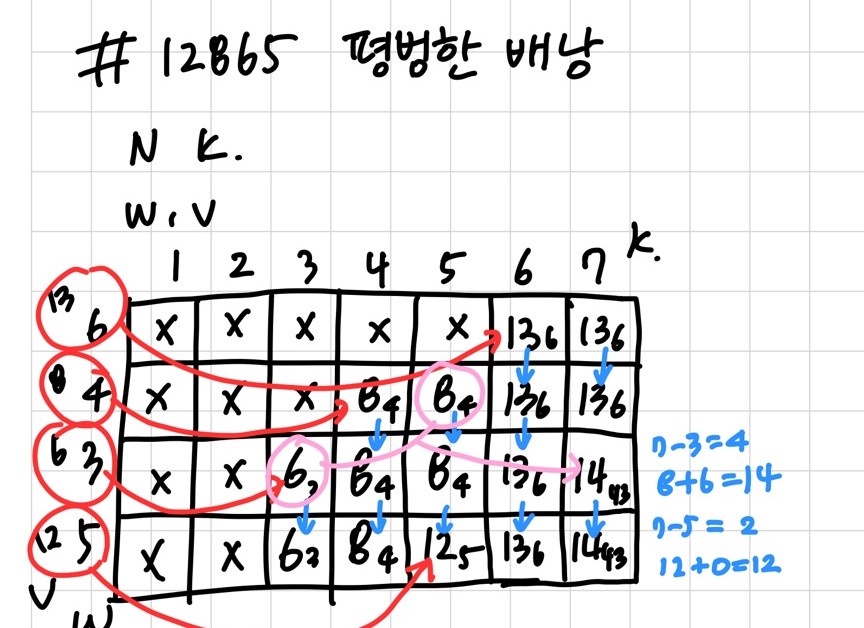 # 12865 평범한 배낭
N K.
W, V
1 2 3 4 5 6 7 K.
13 6 X X X X X 13 6 13 6
8 4 X X X 8 4 8 4 13 6 13 6
6 3 X X 6 3 8 4 8 4 13 6 14 43
12 5 X X 6 3 8 4 12 5 13 6 14 43
V W
7-3=4
8+6=14
7-5=2
12+0=12